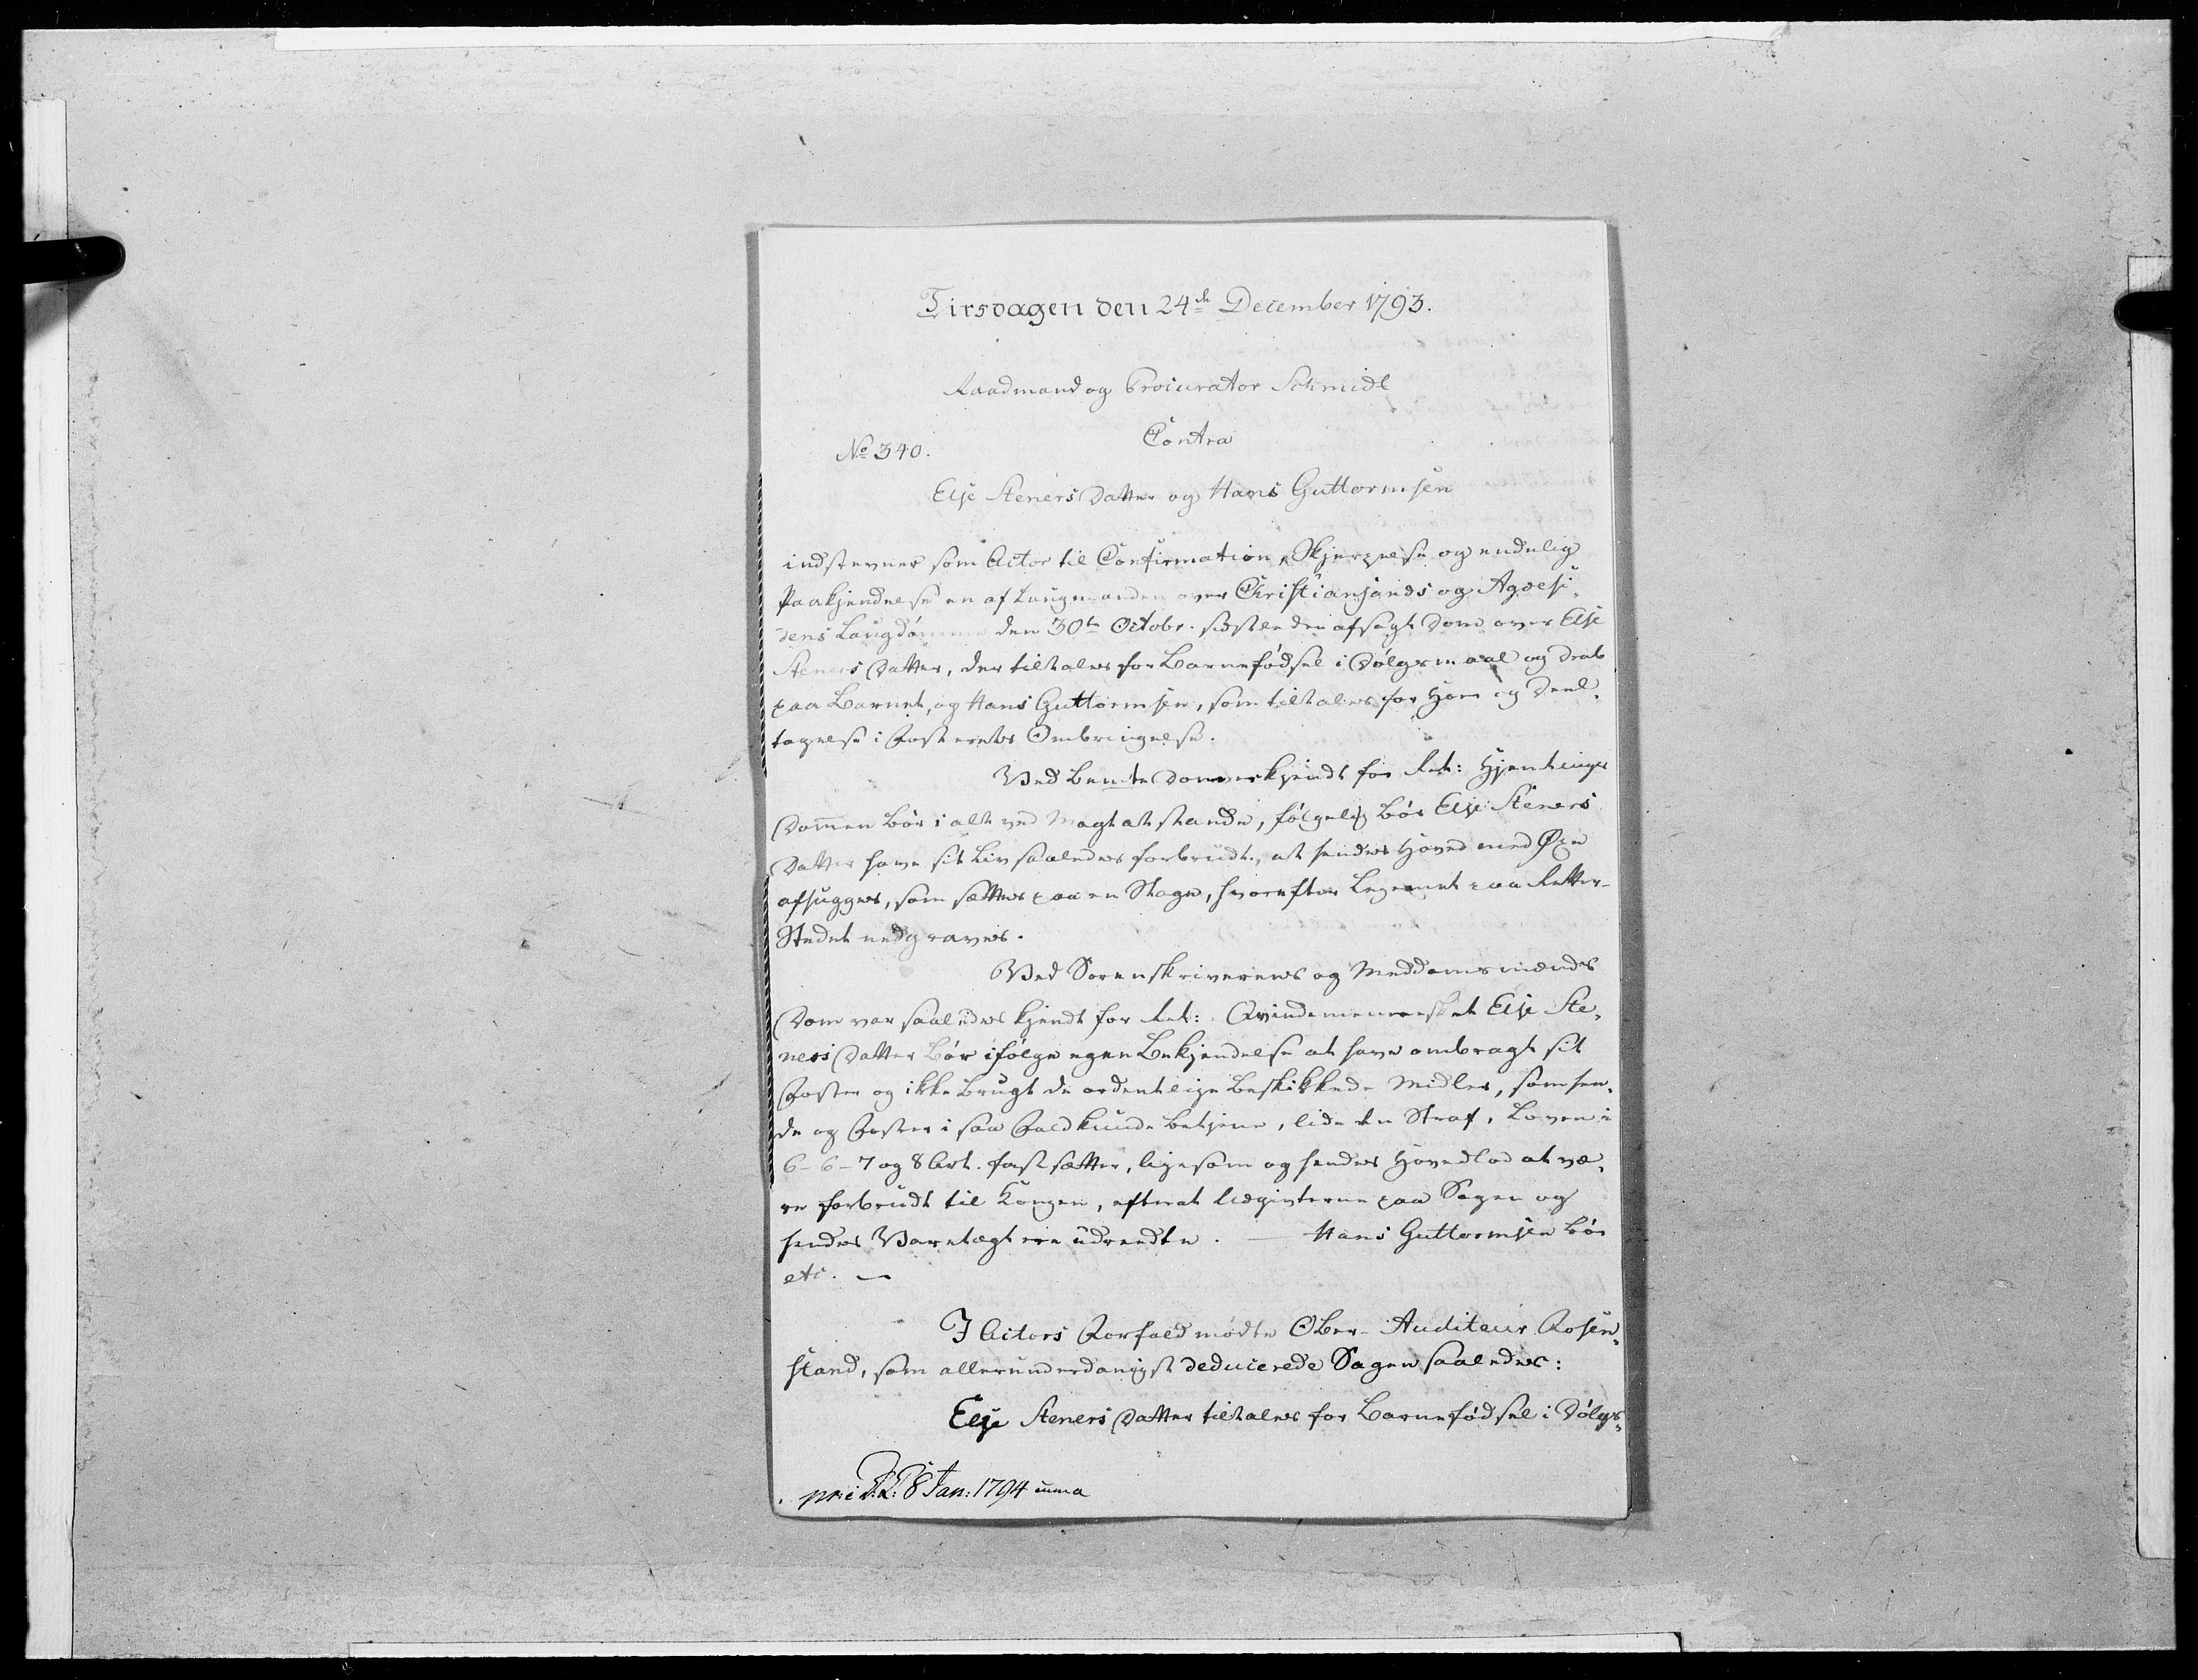 Tirsdagen den 24de December 1793.
Raadmand og Procurator Schmidt
Contra
No 340.
Else Steners Datter og Hans Guttormsen
indstevner som Actor til Confirmation, Skjerpelse og endelig
Paakjendelse en af Laugmanden over Christiansands og Agdesi-
dens Laugdømme den 30te Octobr. sidstleden afsagt Dom over Else
Steners Datter, der tiltales for Barnefødsel i Dølgsmaal og Drab
paa Barnet, og Hans Guttormsen, som tiltales for Hor og Deel-
tagelse i Fosterets Ombringelse.
Ved bemte Dom er kjendt for Ret: Hjemtings
Dommen bør i alt ved Magt at stande, følgelig bør Else Steners
Datter have sit Liv saaledes forbrudt, at hendes Hoved med Øxe
afhugges, som sættes paa en Stage, hvorefter Legemet paa Retter-
Stedet nedgraves.
Ved Sorenskriverens og Meddomsmænds
Dom var saaledes kjendt for Ret: Qvindemennesket Else Ste-
ners Datter bør ifølge egen Bekjendelse at have ombragt sit
Foster og ikke brugt de ordentlige beskikkede Midler, som hen-
de og Foster i saa Fald kunde betjene, lide den Straf, Loven i
6-6-7 og 8 Art. fastsætter, ligesom og hendes Hovedlod at væ-
re forbrudt til Kongen, efterat Udgivterne paa Sagen og
hendes Varetægt ere udredte. — Hans Guttormsen bør
etc. —
I Actors Forfald mødte Ober-Auditeur Rosen-
stand, som allerunderdanigst deducerede Sagen saaledes:
Else Steners Datter tiltales for Barnefødsel i Dølgs-
8 Jan: 1794